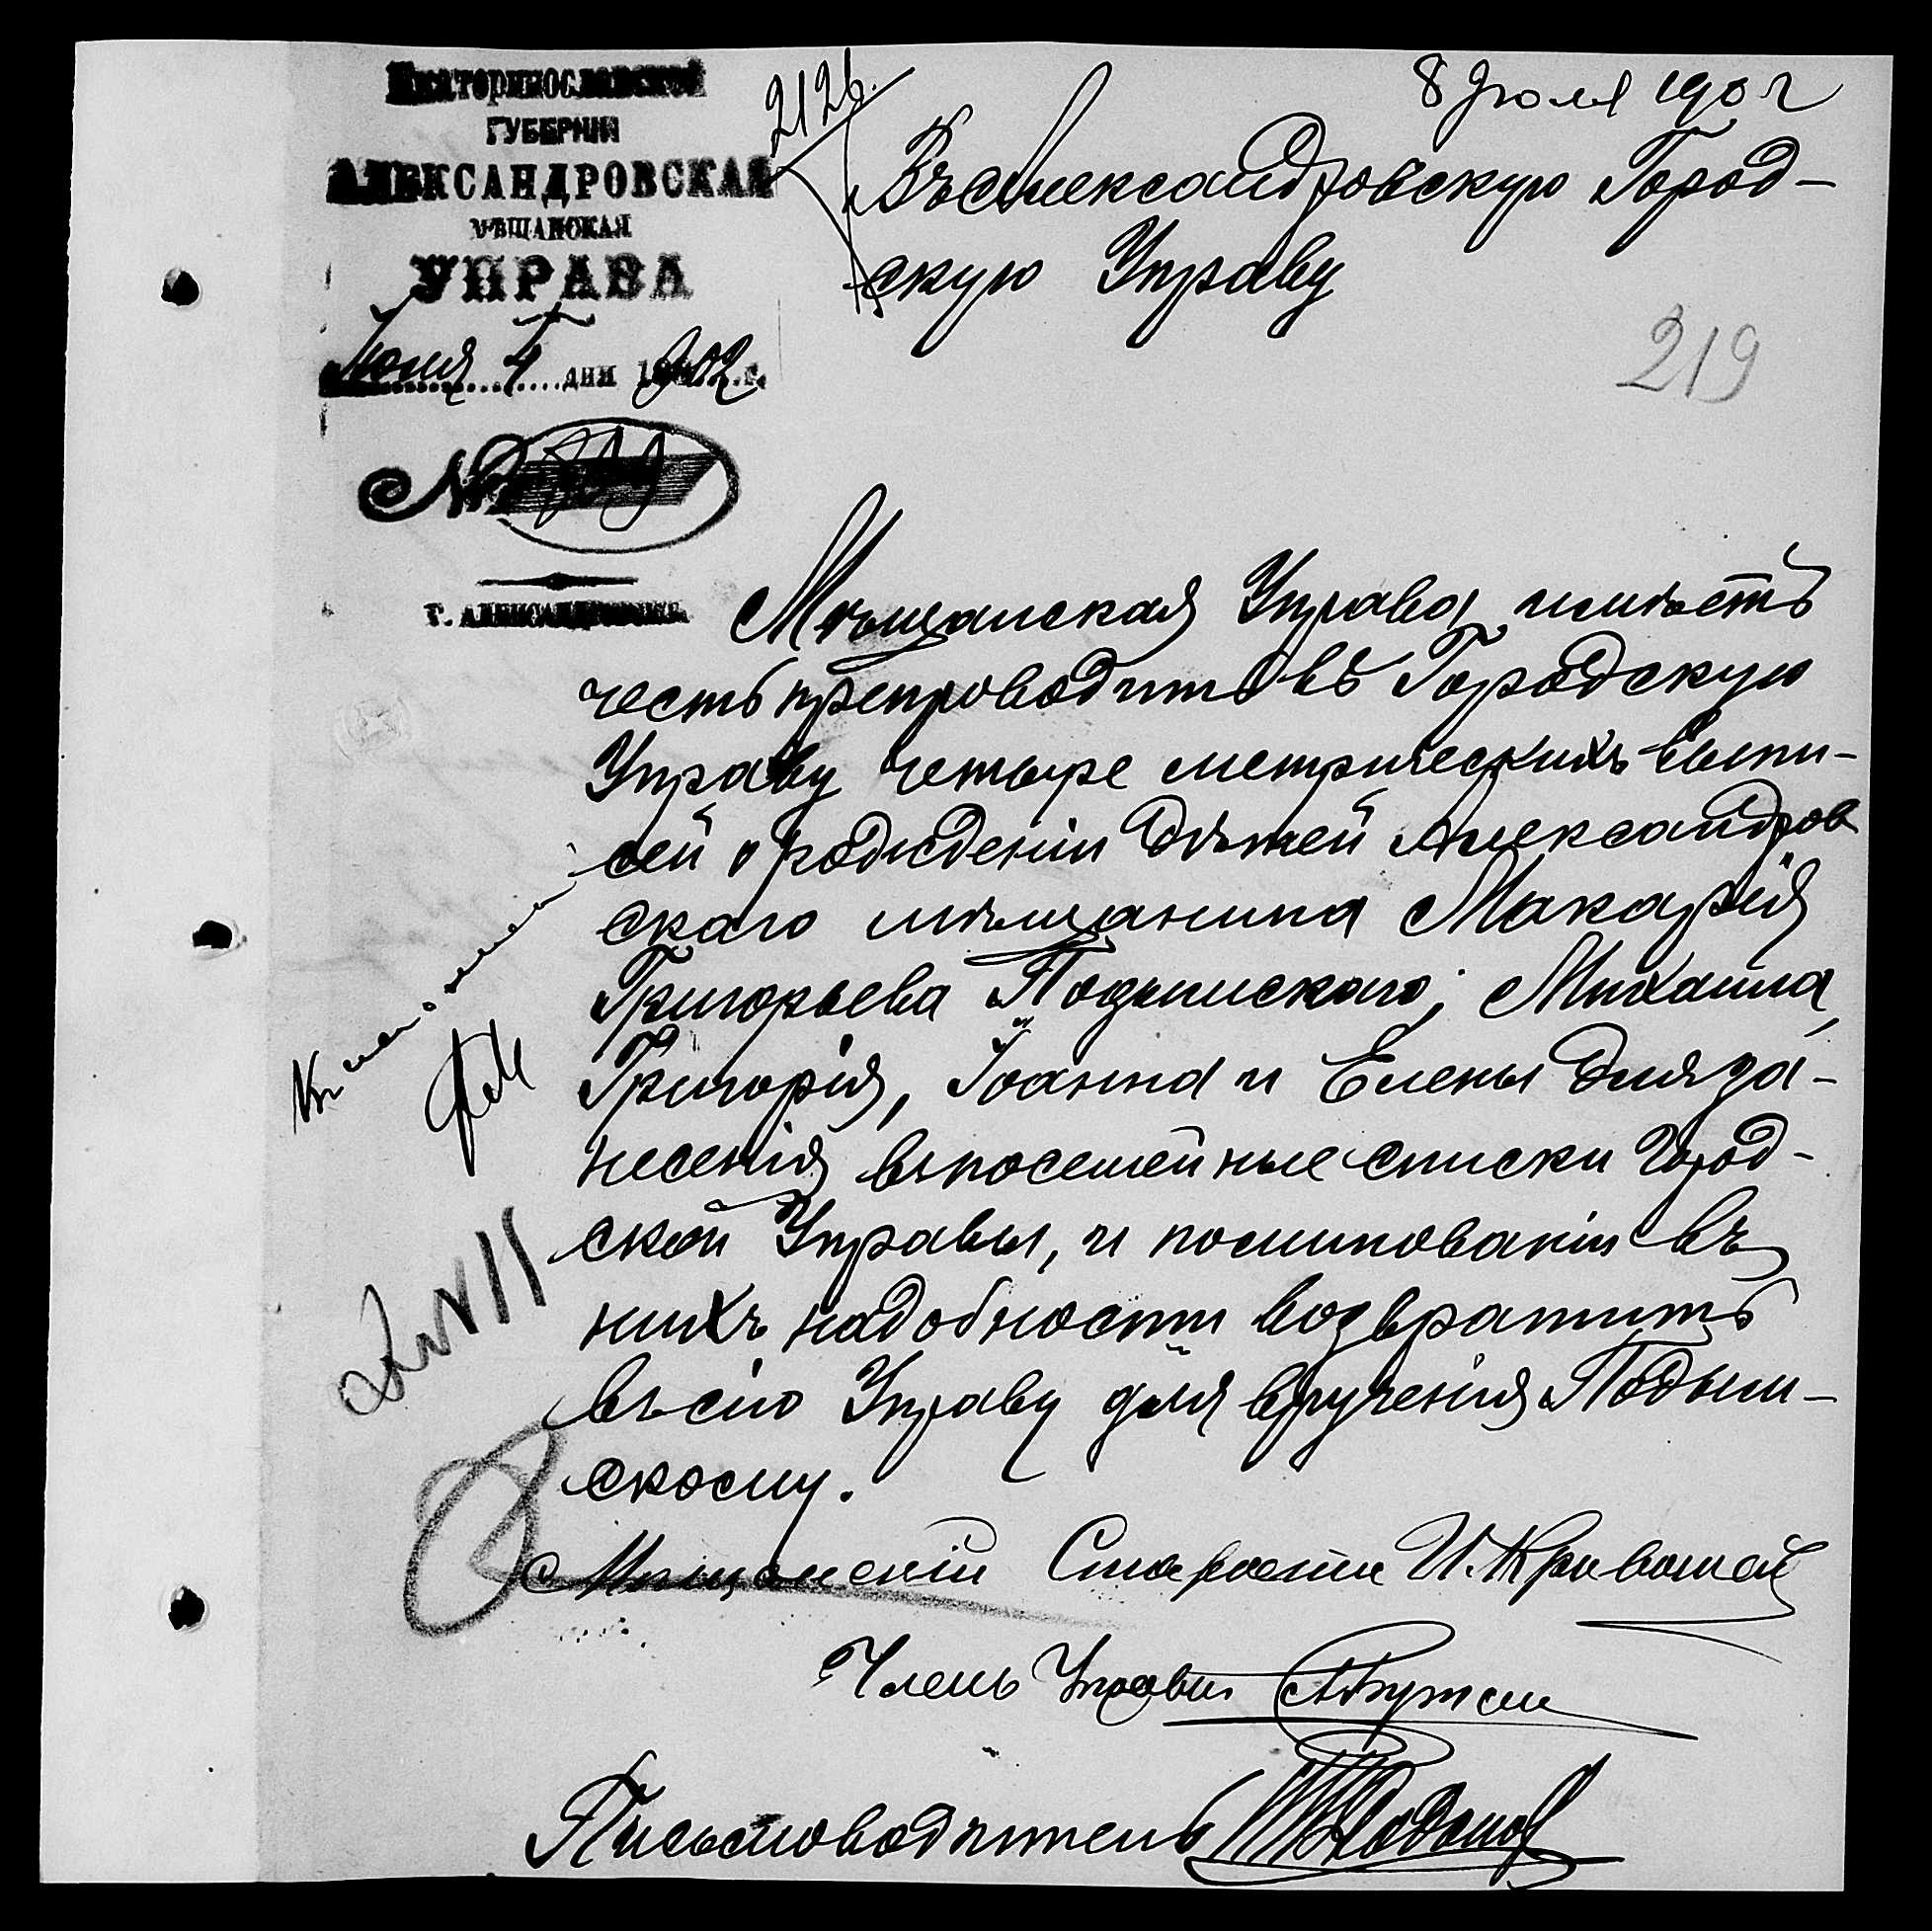 Екатеринославской
ГУБЕРНІИ
АЛЕКСАНДРОВСКАЯ
МѢЩАНСКАЯ
УПРАВА
Іюля 4 дня 1902 г.
№
Г. АЛЕКСАНДРОВСКЪ
2126.
8 Іюля 1902
Въ Александровскую Город-
скую Управу
219
Мѣщанская Управа имѣетъ
честь препроводить въ Городскую
Управу четыре метрическихъ выпи-
сей о рожденіи дѣтей Александров
скаго мѣщанина Макарія
Григорьева Подымскаго; Михаила,
Григорія, Іоанна и Елены для за-
несенія въ посемейные списки Город-
ской Управы, и по минованіи въ
нихъ надобности возвратить
въ сію Управу для врученія Подым-
скому.
Мѣщанскій Староста И. Кривошей
Членъ Управы
Письмоводитель